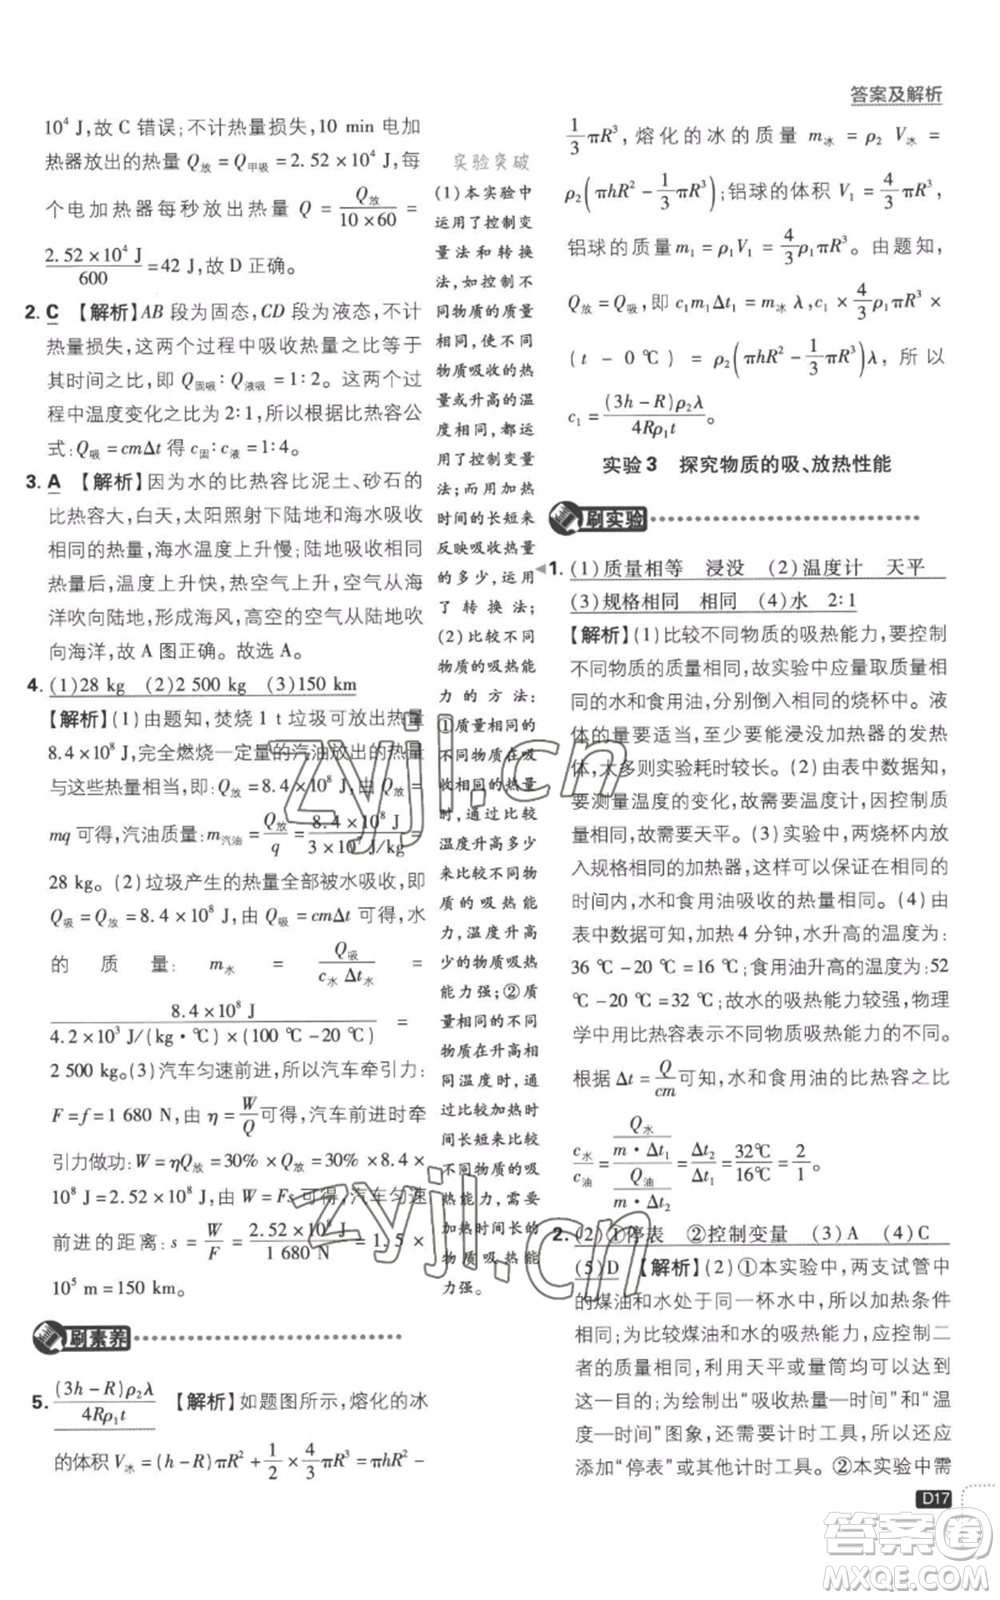 答案及解析
10⁴ J,故 C 错误;不计热量损失,10 min 电加
热器放出的热量 Q放=Q甲吸=2.52×10⁴ J,每
个电加热器每秒放出热量 Q = Q放/(10×60) =
(2.52×10⁴ J)/600=42 J,故 D 正确。
2. C 【解析】AB 段为固态,CD 段为液态,不计
热量损失,这两个过程中吸收热量之比等于
其时间之比,即 Q固吸∶Q液吸=1∶2。这两个过
程中温度变化之比为 2∶1,所以根据比热容公
式:Q吸=cmΔt 得 c固∶c液=1∶4。
3. A 【解析】因为水的比热容比泥土、砂石的
比热容大,白天,太阳照射下陆地和海水吸收
相同的热量,海水温度上升慢;陆地吸收相同
热量后,温度上升快,热空气上升,空气从海
洋吹向陆地,形成海风,高空的空气从陆地吹
向海洋,故 A 图正确。故选 A。
4. (1)28 kg (2)2 500 kg (3)150 km
【解析】(1)由题知,焚烧 1 t 垃圾可放出热量
8.4×10⁸ J,完全燃烧一定量的汽油放出的热量
与这些热量相等,即:Q放=8.4×10⁸ J,由 Q放=
mq 可得,汽油质量:m汽油=Q放/q=(8.4×10⁸ J)/(3×10⁷ J/kg)=
28 kg。(2)垃圾产生的热量全部被水吸收,即
Q吸=Q放=8.4×10⁸ J,由 Q吸=cmΔt 可得,水
的 质 量: m水 = Q吸/(c水 Δt水) =
(8.4×10⁸ J)/(4.2×10³ J/(kg·℃)×(100 ℃-20 ℃)) =
2 500 kg。(3)汽车匀速前进,所以汽车牵引力:
F=f=1 680 N,由 η=W/Q可得,汽车前进时牵
引力做功:W=ηQ放=30%×Q放=30%×8.4×
10⁸ J=2.52×10⁸ J,由 W=Fs 可得,汽车匀速
前进的距离:s=W/F=(2.52×10⁸ J)/(1 680 N)=1.5×
10⁵ m=150 km。
刷素养
5. (3h-R)ρ₂λ/(4Rρ₁t) 【解析】如题图所示,熔化的冰
的体积 V冰=(h-R)πR²+1/2×4/3πR³=πhR²-
实验突破
(1)本实验中
运用了控制变
量法和转换
法,如控制不
同物质的质量
相同,使不同
物质吸收的热
量或升高的温
度相同,都运
用了控制变量
法;而用加热
时间的长短来
反映吸收热量
的多少,运用
了转换法;
(2)比较不同
物质的吸热能
力的方法:
①质量相同的
不同物质吸收
相同热量时,
通过比较
温度升高多少
来比较不同物
质的吸热能
力,温度升高
少的物质吸热
能力强;②质
量相同的不同
物质在升高相
同温度时,通
过比较加热时
间长短来比较
不同物质的吸
热能力,需要
加热时间长的
物质吸热能
力强。
1/3πR³,熔化的冰的质量 m冰=ρ₂ V冰=
ρ₂(πhR²-1/3πR³);铝球的体积 V₁=4/3πR³,
铝球的质量 m₁=ρ₁V₁=4/3ρ₁πR³。由题知,
Q放=Q吸,即 c₁m₁Δt₁=m冰λ,c₁×4/3ρ₁πR³×
(t-0 ℃)=ρ₂(πhR²-1/3πR³)λ,所以
c₁=(3h-R)ρ₂λ/(4Rρ₁t)。
实验 3 探究物质的吸、放热性能
刷实验
1. (1)质量相等 浸没 (2)温度计 天平
(3)规格相同 相同 (4)水 2∶1
【解析】(1)比较不同物质的吸热能力,要控制
不同物质的质量相同,故实验中应量取质量相
同的水和食用油,分别倒入相同的烧杯中。液
体的量要适当,至少要能浸没加热器的发热
体,太多则实验耗时较长。(2)由表中数据知,
要测量温度的变化,故要用温度计,因控制质
量相同,故需要天平。(3)实验中,两烧杯内放
入规格相同的加热器,这样可以保证在相同的
时间内,水和食用油吸收的热量相同。(4)由
表中数据可知,加热 4 分钟,水升高的温度为:
36 ℃-20 ℃=16 ℃;食用油升高的温度为:52
℃-20 ℃=32 ℃;故水的吸热能力较强,物理
学中用比热容表示不同物质吸热能力的不同。
根据 Δt=Q/cm可知,水和食用油的比热容之比
c水/c油=(Q水/(m·Δt₁))/(Q油/(m·Δt₂))=Δt₂/Δt₁=32℃/16℃=2/1。
2. (2)①停表 ②控制变量 (3)A (4)C
(5)D 【解析】(2)①本实验中,两支试管中
的煤油和水处于同一杯水中,可使加热条件
相同,而要比较煤油和水的吸热能力,应控制二
者的质量相同,利用天平或量筒均可以达到
这一目的;为绘制出“吸收热量—时间”和“温
度—时间”图象,还需要计时工具,所以还应
添加“停表”或其他计时工具。②本实验中需
D17
zyjl.cn
zyjl.cn
答案卷